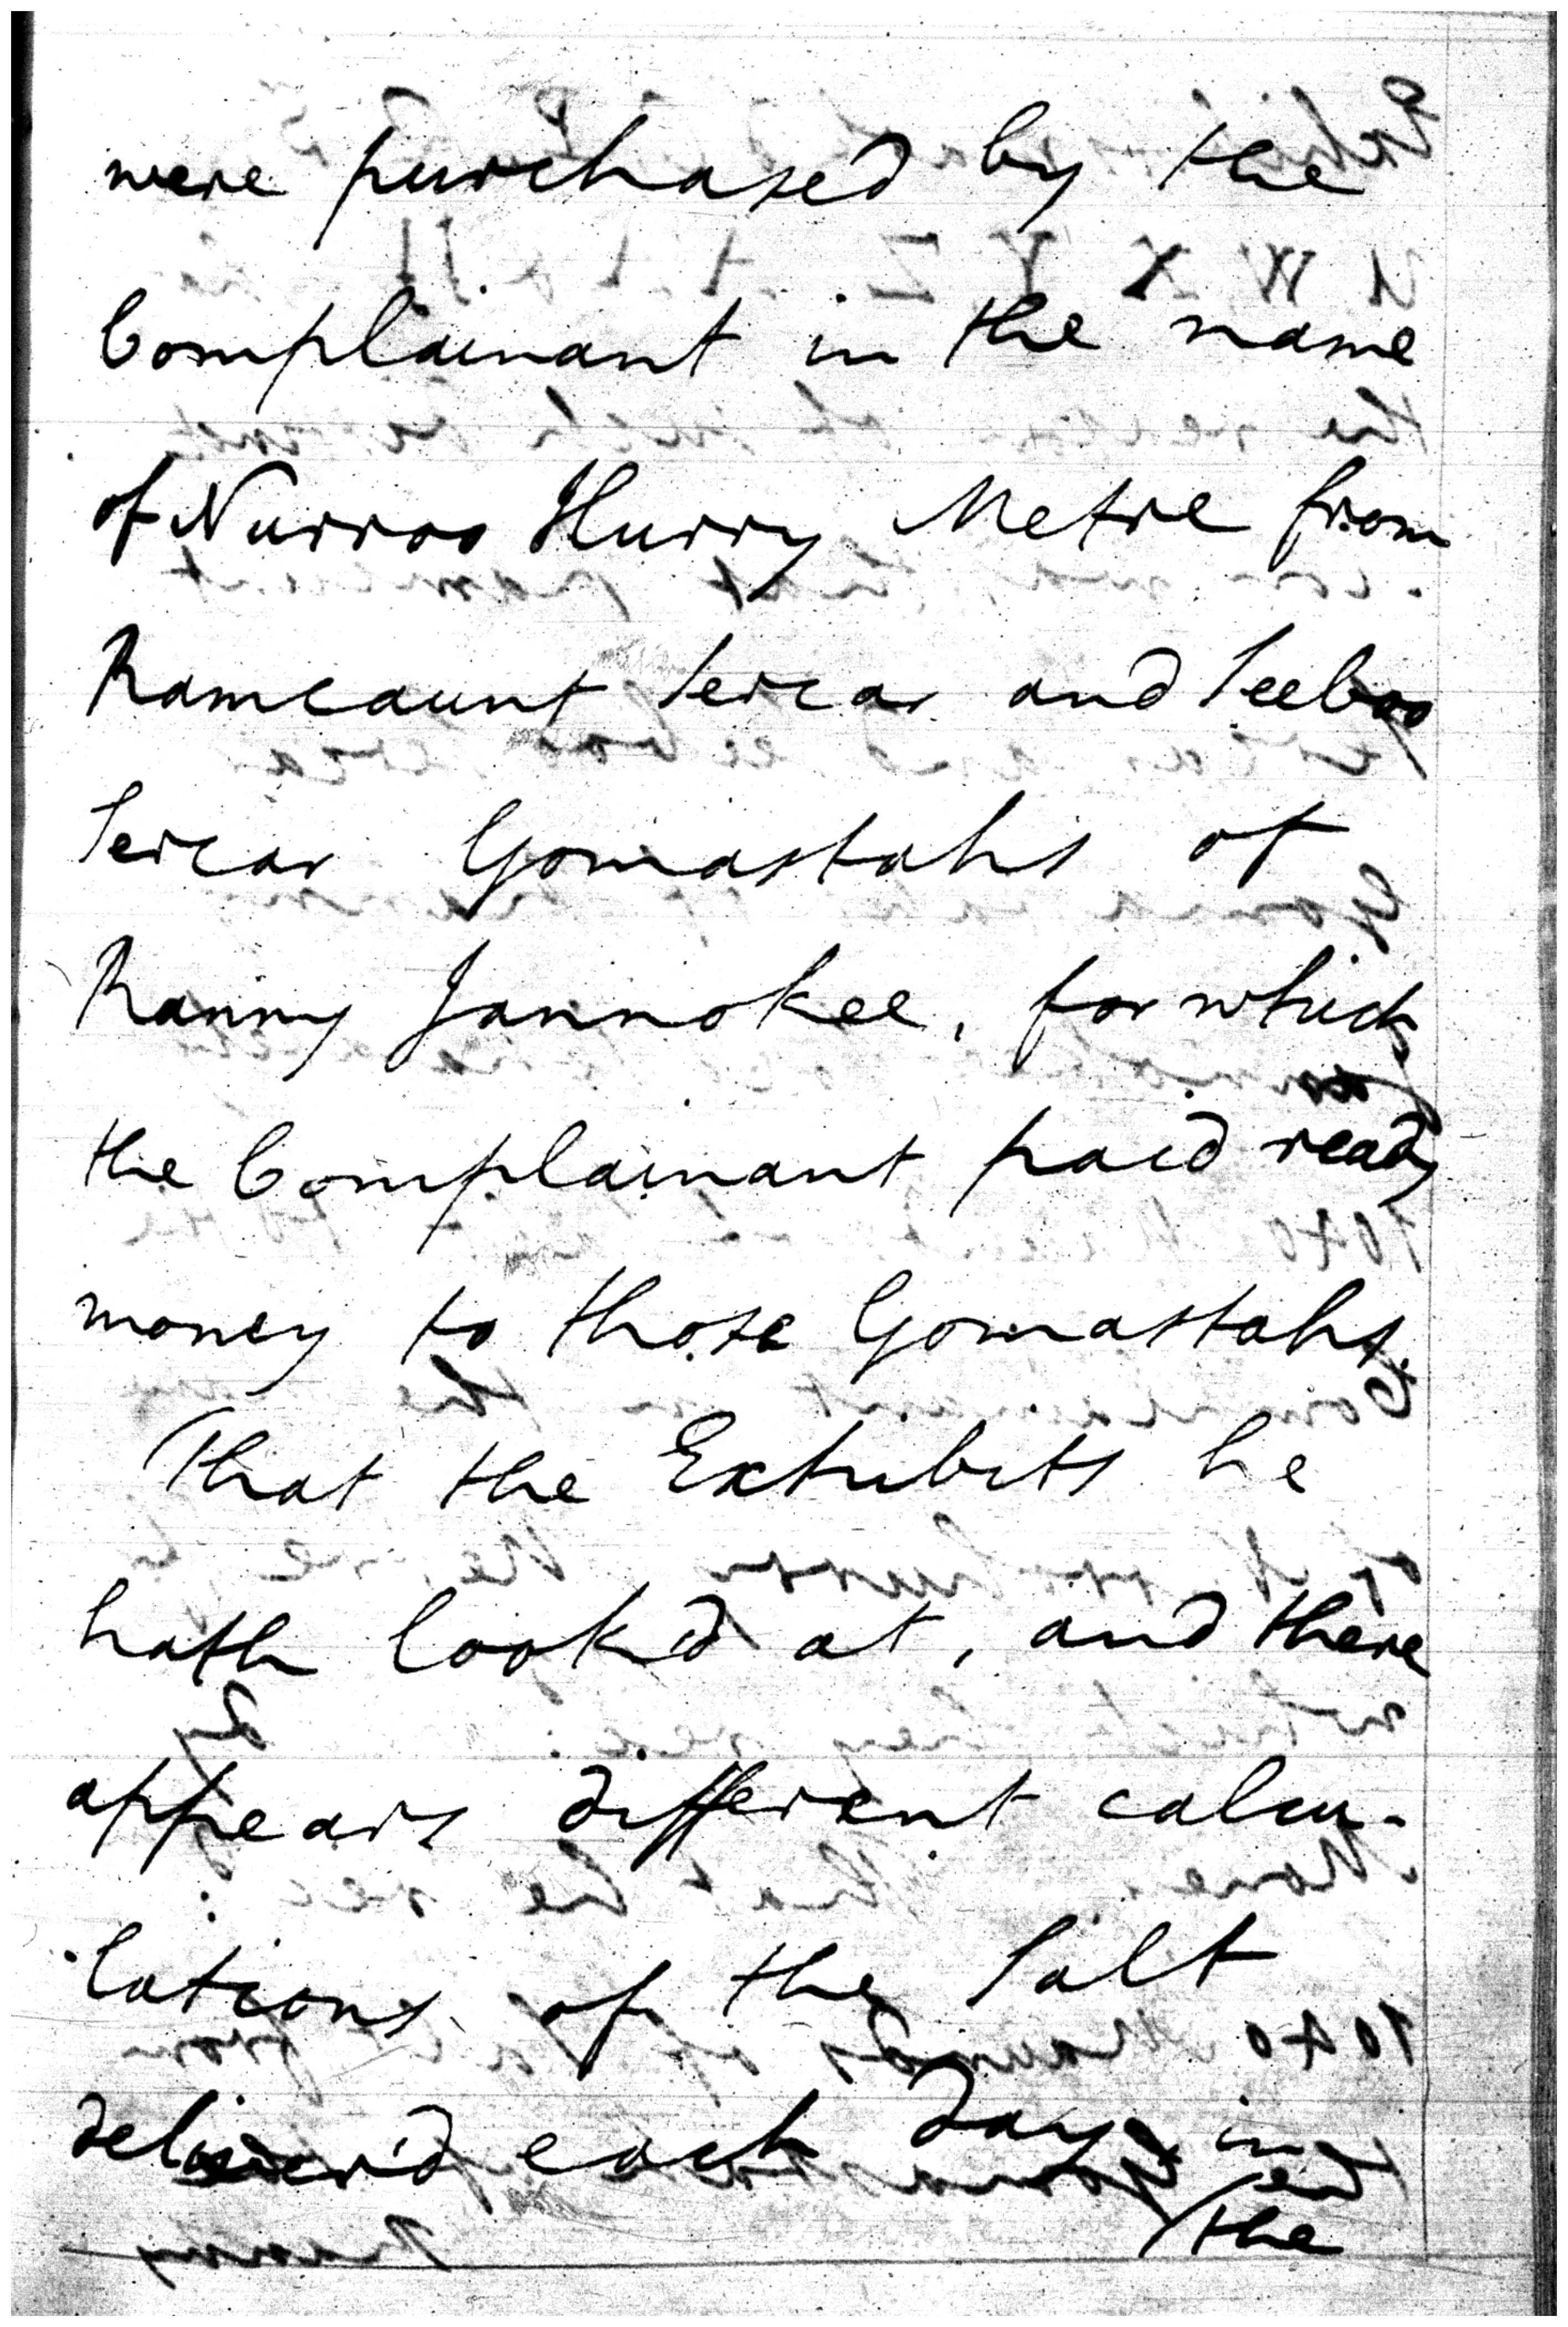 were purchased by the
Complainant in the name
of Nurroo Hurry Metre from
Ramcaunt Sercar and Seeboo
Sercar Gomastahs of
Ranny Jannokee, for which
the Complainant paid ready
money to those Gomastahs.
That the Exhibits he
hath look'd at, and there
appears different calcu-
-lations of the Salt
deliver'd each day in
the